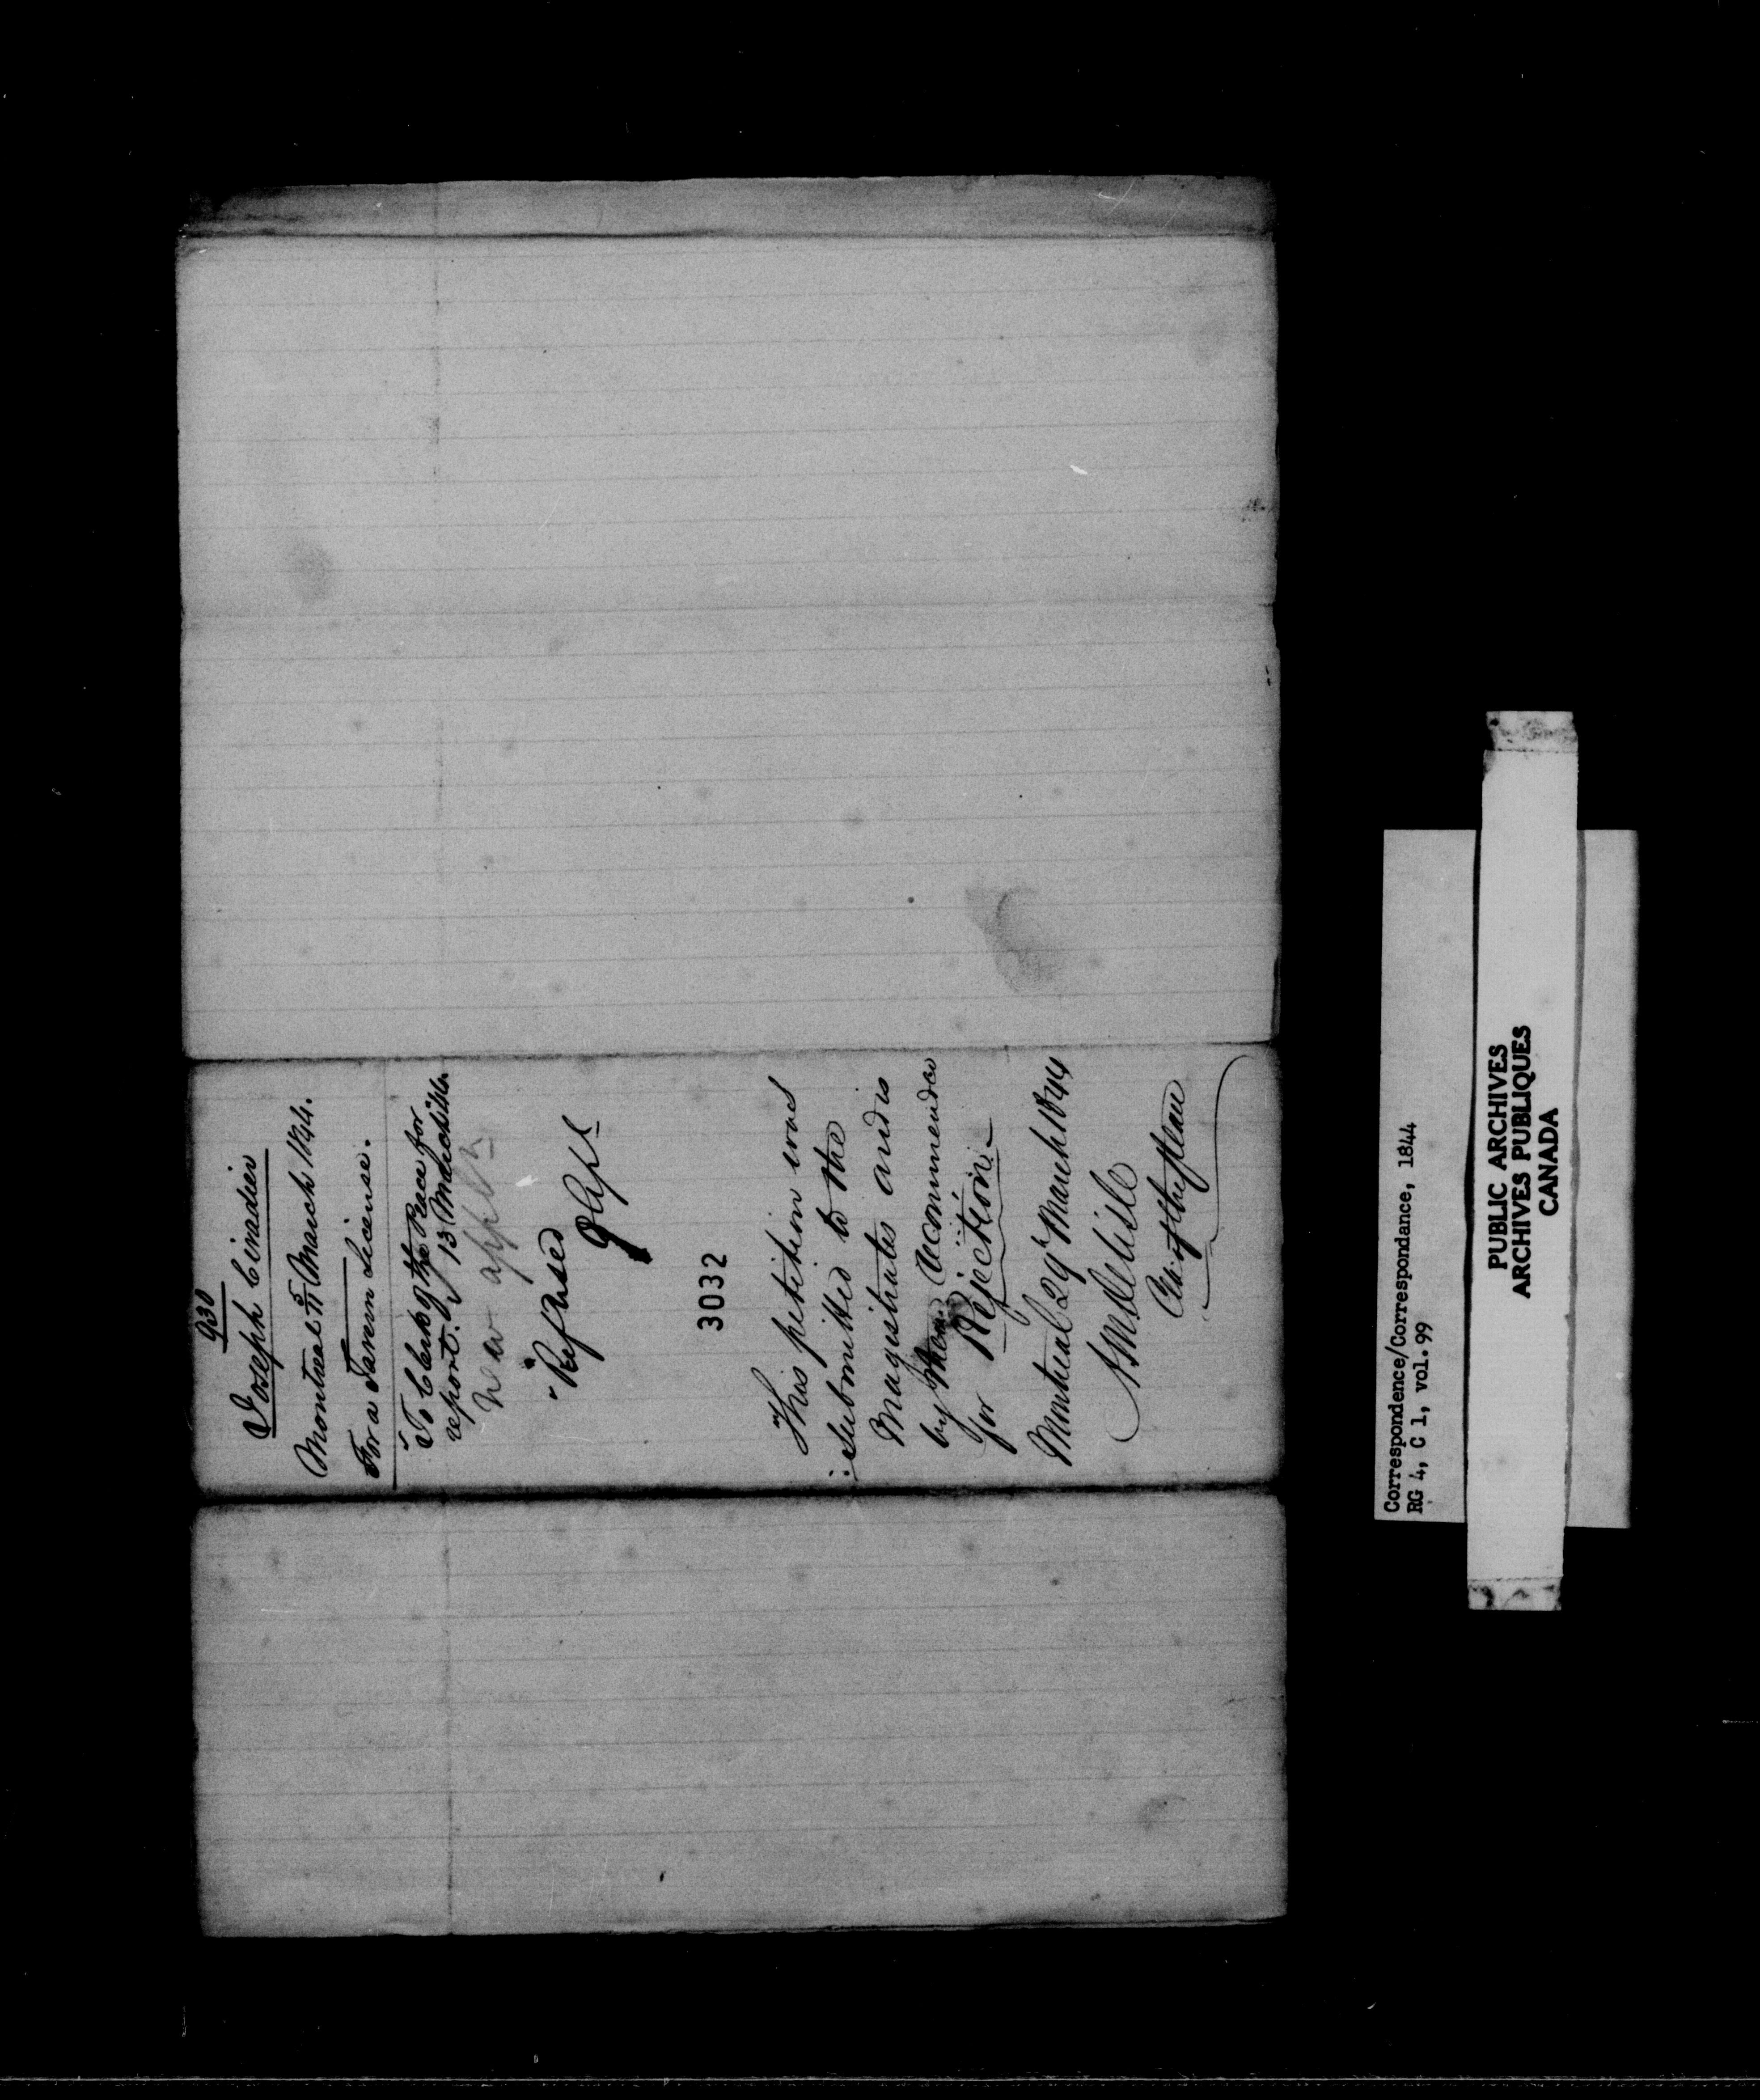 930
Joseph Ciradier
Montreal 11 March 1844.
For a Tavern License.
To Clerk of the Peace for
report. 13 March 1844.
new applt
"Refused
3032
This petition was
submitted to the
Magistrates and is
by them recommended
for Rejection.
Montreal 29th March 1844
A M Delisle
Clk of the peace
Correspondence/Correspondance, 1844
RG 4, C 1, vol. 99
PUBLIC ARCHIVES
ARCHIVES PUBLIQUES
CANADA